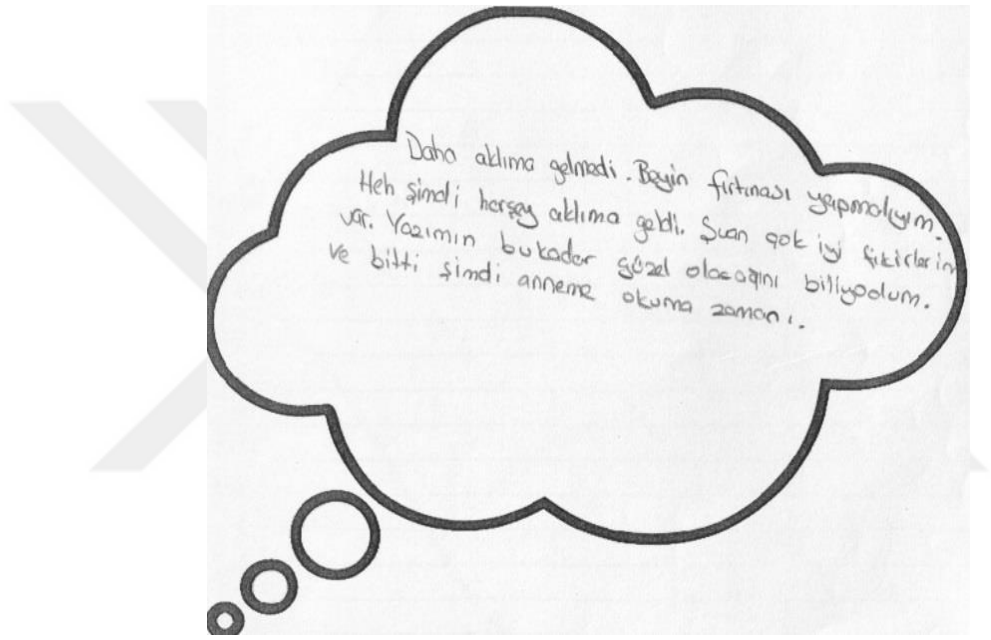 Daha aklıma gelmedi. Beyin fırtınası yapmalıyım.
Heh şimdi herşey aklıma geldi. Şuan çok iyi fikirlerim
var. Yazımın bukadar güzel olacağını biliyodum.
ve bitti şimdi anneme okuma zamanı.